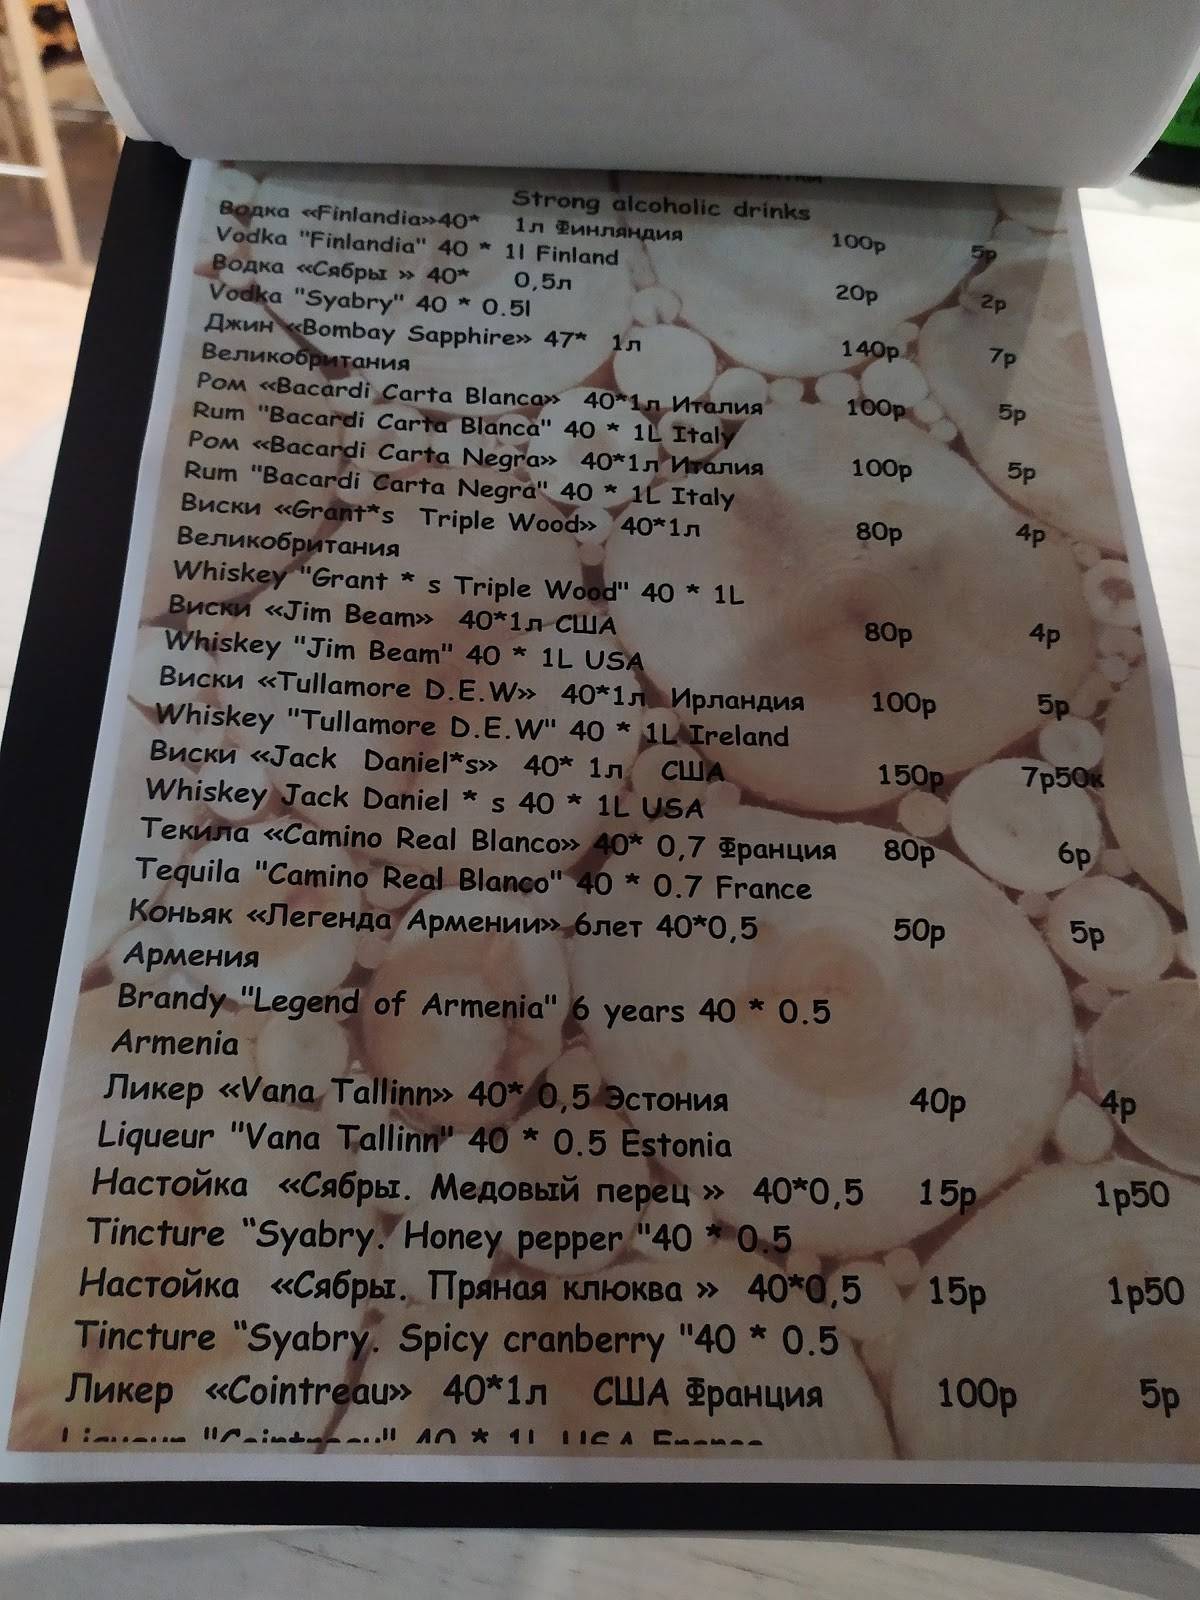 Strong alcoholic drinks
Водка «Finlandia»40* 1л Финляндия 100р 5р
Vodka "Finlandia" 40 * 1l Finland
Водка «Сябры » 40* 0,5л 20р 2р
Vodka "Syabry" 40 * 0.5l
Джин «Bombay Sapphire» 47* 1л 140р 7р
Великобритания
Ром «Bacardi Carta Blanca» 40*1л Италия 100р 5р
Rum "Bacardi Carta Blanca" 40 * 1L Italy
Ром «Bacardi Carta Negra» 40*1л Италия 100р 5р
Rum "Bacardi Carta Negra" 40 * 1L Italy
Виски «Grant*s Triple Wood» 40*1л 80р 4р
Великобритания
Whiskey "Grant * s Triple Wood" 40 * 1L
Виски «Jim Beam» 40*1л США 80р 4р
Whiskey "Jim Beam" 40 * 1L USA
Виски «Tullamore D.E.W» 40*1л Ирландия 100р 5р
Whiskey "Tullamore D.E.W" 40 * 1L Ireland
Виски «Jack Daniel*s» 40* 1л США 150р 7р50к
Whiskey Jack Daniel * s 40 * 1L USA
Текила «Camino Real Blanco» 40* 0,7 Франция 80р 6р
Tequila "Camino Real Blanco" 40 * 0.7 France
Коньяк «Легенда Армении» 6лет 40*0,5 50р 5р
Армения
Brandy "Legend of Armenia" 6 years 40 * 0.5
Armenia
Ликер «Vana Tallinn» 40* 0,5 Эстония 40р 4р
Liqueur "Vana Tallinn" 40 * 0.5 Estonia
Настойка «Сябры. Медовый перец » 40*0,5 15р 1р50
Tincture “Syabry. Honey pepper "40 * 0.5
Настойка «Сябры. Пряная клюква » 40*0,5 15р 1р50
Tincture “Syabry. Spicy cranberry "40 * 0.5
Ликер «Cointreau» 40*1л США Франция 100р 5р
Liqueur "Cointreau" 40 * 1L USA France